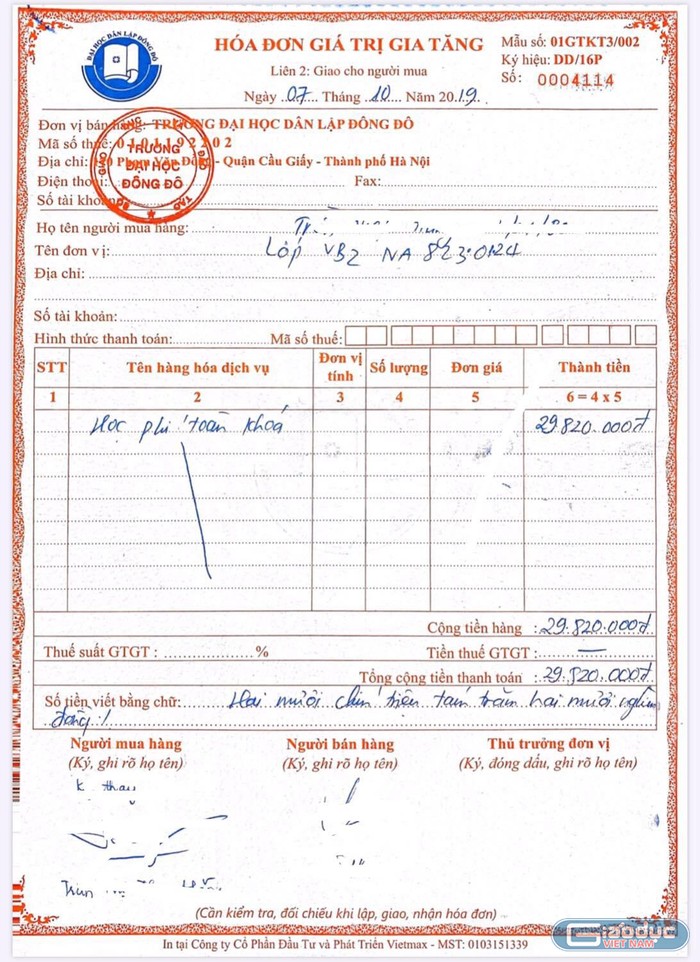 ĐẠI HỌC DÂN LẬP ĐÔNG ĐÔ
HÓA ĐƠN GIÁ TRỊ GIA TĂNG
Liên 2: Giao cho người mua
Ngày 07 Tháng 10 Năm 2019
Mẫu số: 01GTKT3/002
Ký hiệu: DD/16P
Số: 0004114
Đơn vị bán hàng: TRƯỜNG ĐẠI HỌC DÂN LẬP ĐÔNG ĐÔ
Mã số thuế: 0101192202
Địa chỉ: Phạm Văn Đồng - Quận Cầu Giấy - Thành phố Hà Nội
Điện thoại: Fax:
Số tài khoản
TRƯỜNG
ĐẠI HỌC
ĐÔNG ĐÔ
Họ tên người mua hàng:
Tên đơn vị: Lớp VB2 NA 823.0124
Địa chỉ:
Số tài khoản:
Hình thức thanh toán: Mã số thuế:
STT Tên hàng hóa dịch vụ Đơn vị tính Số lượng Đơn giá Thành tiền
1 2 3 4 5 6 = 4 x 5
Học phí toàn khoá 29.820.000đ
Cộng tiền hàng : 29.820.000đ
Thuế suất GTGT : % Tiền thuế GTGT : —
Tổng cộng tiền thanh toán : 29.820.000đ
Số tiền viết bằng chữ: Hai mươi chín triệu tám trăm hai mươi nghìn
đồng!
Người mua hàng Người bán hàng Thủ trưởng đơn vị
(Ký, ghi rõ họ tên) (Ký, ghi rõ họ tên) (Ký, đóng dấu, ghi rõ họ tên)
(Cần kiểm tra, đối chiếu khi lập, giao, nhận hóa đơn)
In tại Công ty Cổ Phần Đầu Tư và Phát Triển Vietmax - MST: 0103151339
GIÁO DỤC
VIỆT NAM